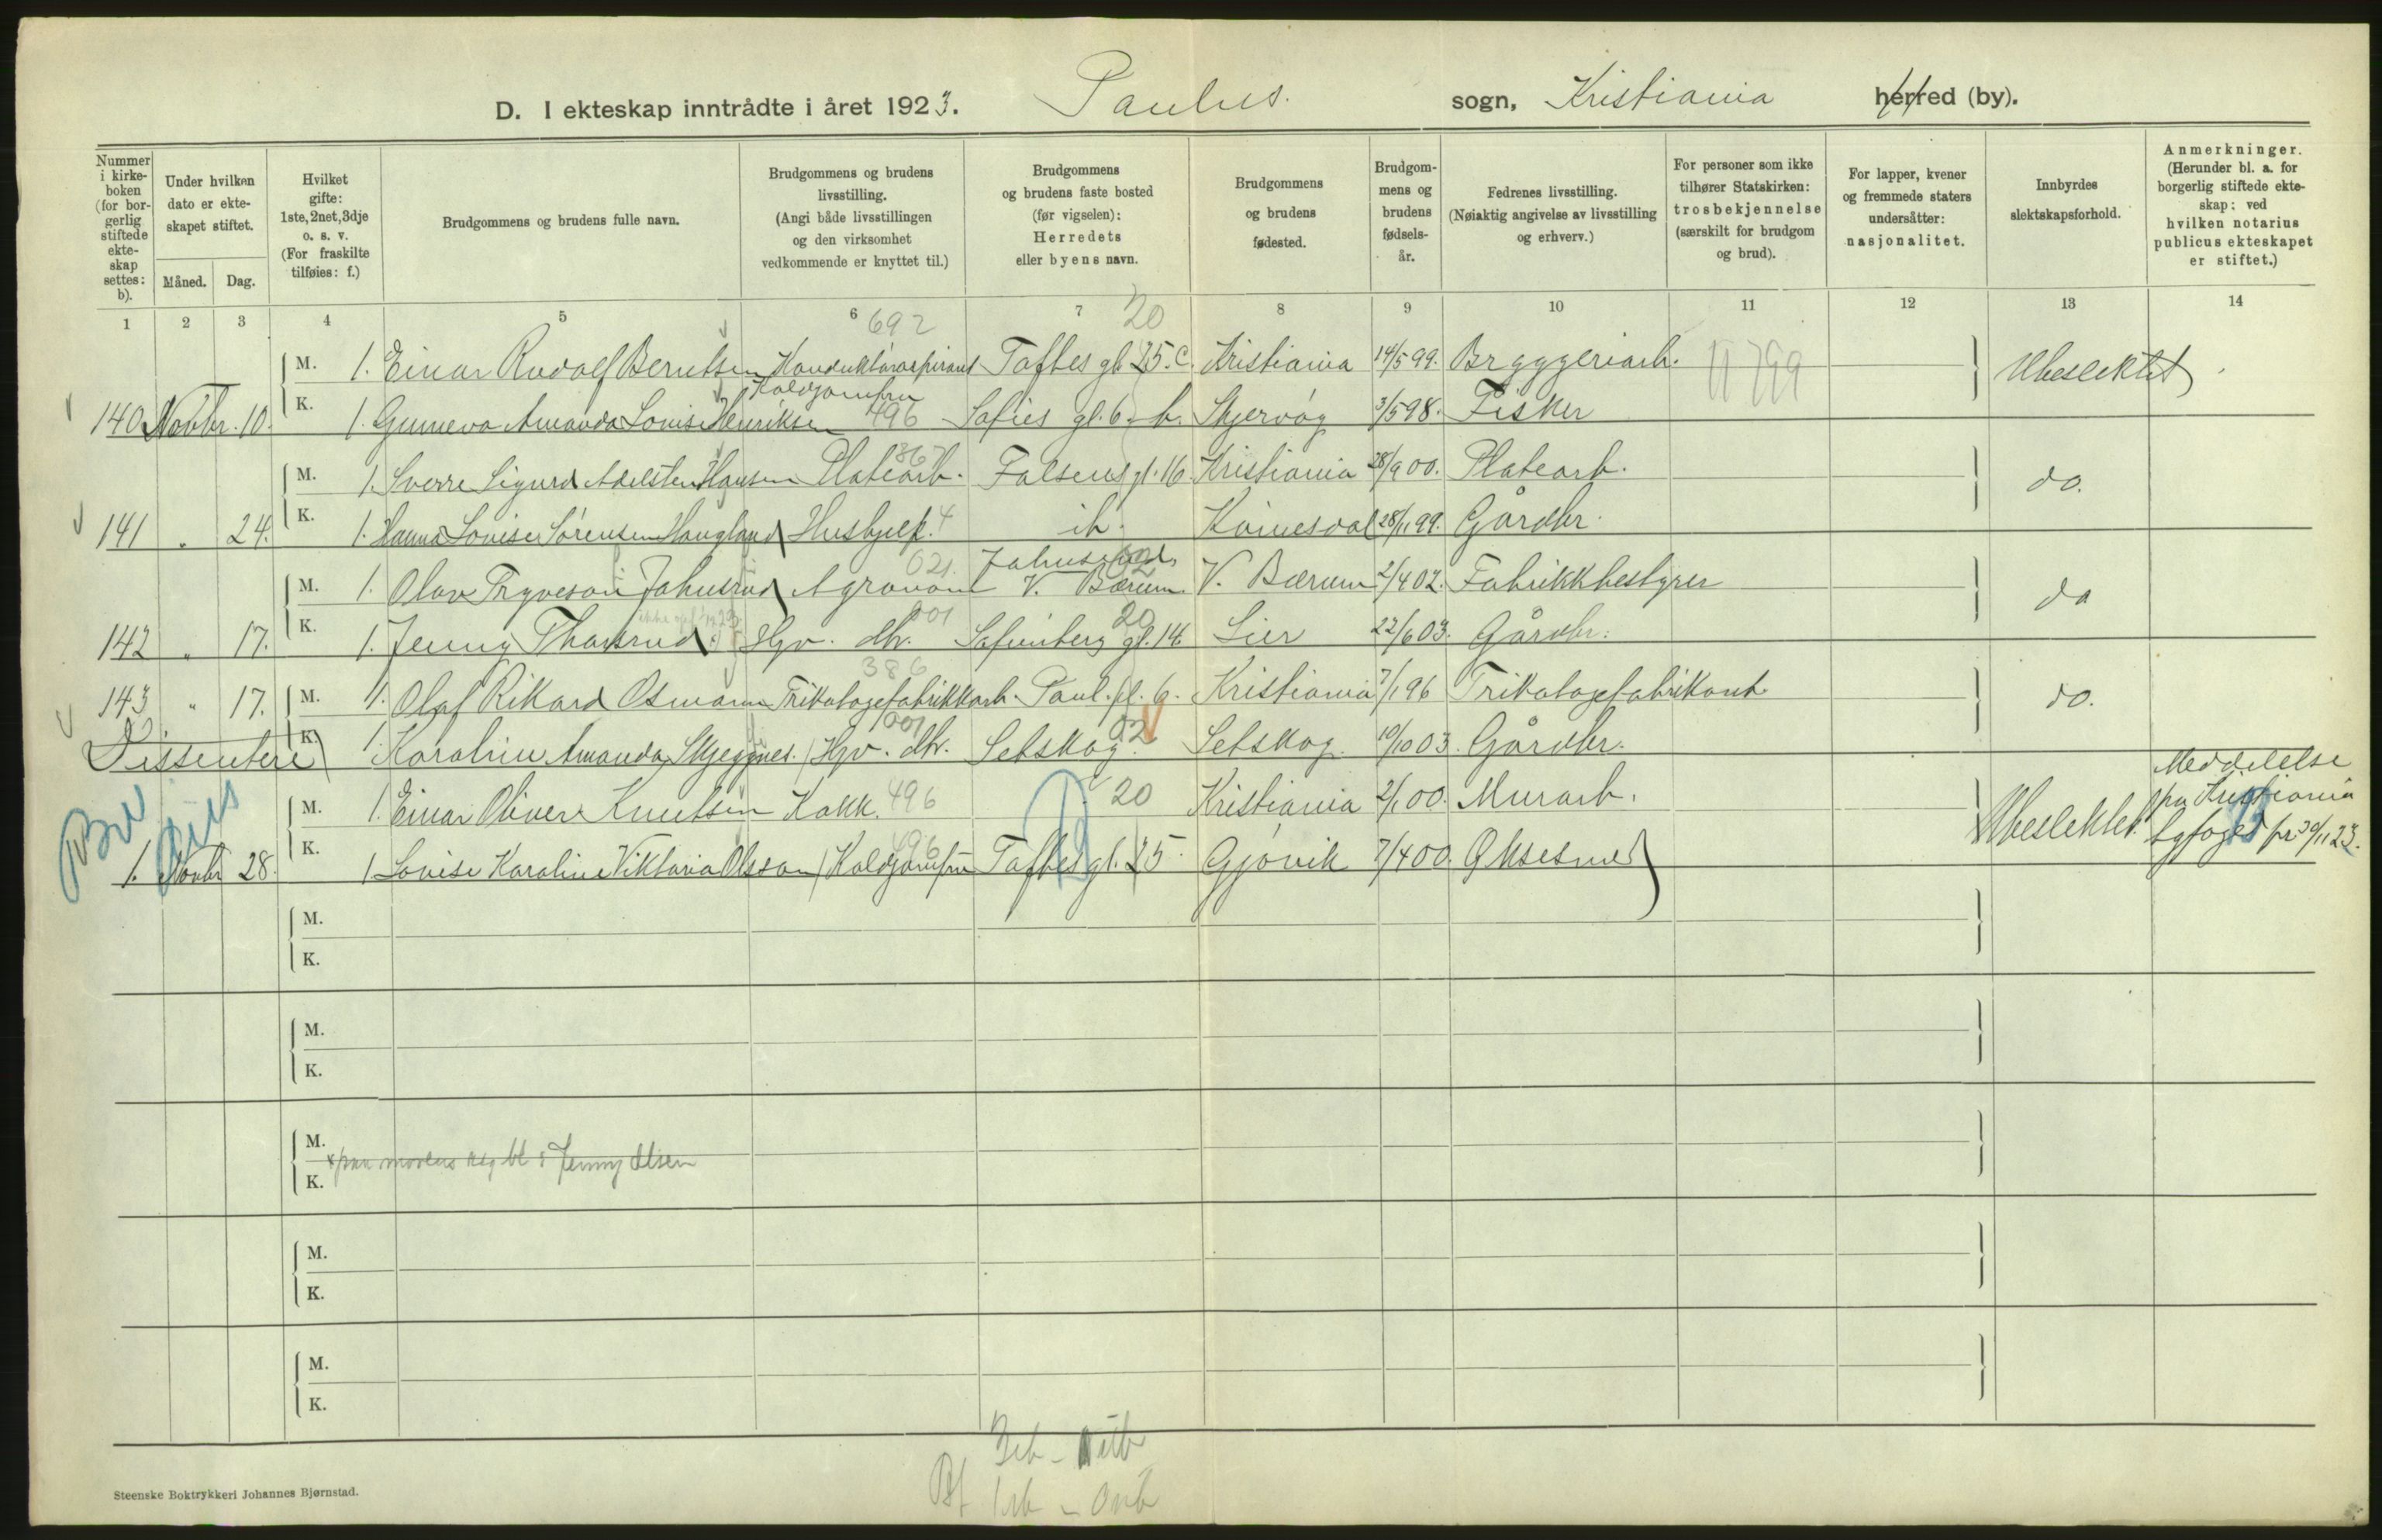 D. I ekteskap inntrådte i året 1923. Paulus. sogn, Kristiania herred (by).
Nummer i kirkeboken (for borgerlig stiftede ekteskap settes: b).
Under hvilken dato er ekteskapet stiftet.
Måned. Dag.
Hvilket gifte: 1ste, 2net, 3dje o. s. v. (For fraskilte tilføies: f.)
Brudgommens og brudens fulle navn.
Brudgommens og brudens livsstilling. (Angi både livsstillingen og den virksomhet vedkommende er knyttet til.)
Brudgommens og brudens faste bosted (før vigselen): Herredets eller byens navn.
Brudgommens og brudens fødested.
Brudgommens og brudens fødselsår.
Fedrenes livsstilling. (Nøiaktig angivelse av livsstilling og erhverv.)
For personer som ikke tilhører Statskirken: trosbekjennelse (særskilt for brudgom og brud).
For lapper, kvener og fremmede staters undersåtter: nasjonalitet.
Innbyrdes slektskapsforhold.
Anmerkninger. (Herunder bl. a. for borgerlig stiftede ekteskap; ved hvilken notarius publicus ekteskapet er stiftet.)
1 2 3 4 5 6 7 8 9 10 11 12 13 14
692 20
M. 1. Einar Rudolf Berntsen Konduktöraspirant Toftes gt. 25. c. Kristiania 14/5 99. Bryggeriarb. Ubeslektet
Koldjomfru
140 Novbr. 10. K. 1. Gunneva Amanda Lovise Henriksen 496 Sofies gt. 6. b. Skjervög 3/5 98. Fisker
867
M. 1. Sverre Sigurd Adelsten Hansen Platearb. Falsens gt. 16. Kristiania 28/9 00. Platearb. do.
141 " 24. K. 1. Hanna Lovise Sörensen Haugland Hushjelp. 4 ib. Kvinesdal 28/11 99. Gårdbr.
021. Johnsrud
M. 1. Olav Trygveson Johnsrud Agronom V. Bærum. V. Bærum 2/4 02. Fabrikkbestyrer do
001 20
142 " 17. K. 1. Jenny Thorsrud Hgv. dtr. Sofienberg gt. 14 Lier 22/6 03. Gårdbr.
386
143 " 17. M. 1. Olaf Rikard Osmann Trikotagefabrikkarb. Paul. pl. 6. Kristiania 7/1 96 Trikotagefabrikant do.
001 02
K. 1. Karoline Amanda Skjeggnes. Hgv. dtr. Setskog. Setskog. 10/10 03. Gårdbr.
Dissentere
M. 1. Einar Oliver Knutsen Kokk. 496 20 Kristiania 2/1 00. Murarb. Ubeslektet. Meddelelse fra Kristiania byfoged pr. 30/11 23.
496
1. Novbr 28. K. 1 Lovise Karoline Viktoria Olsson Koldjomfru Toftes gt. 25. Gjövik 7/4 00.
M.
K.
M.
K.
M.
Jenny Olsen
K.
M.
K.
M.
K.
Steenske Boktrykkeri Johannes Bjørnstad.